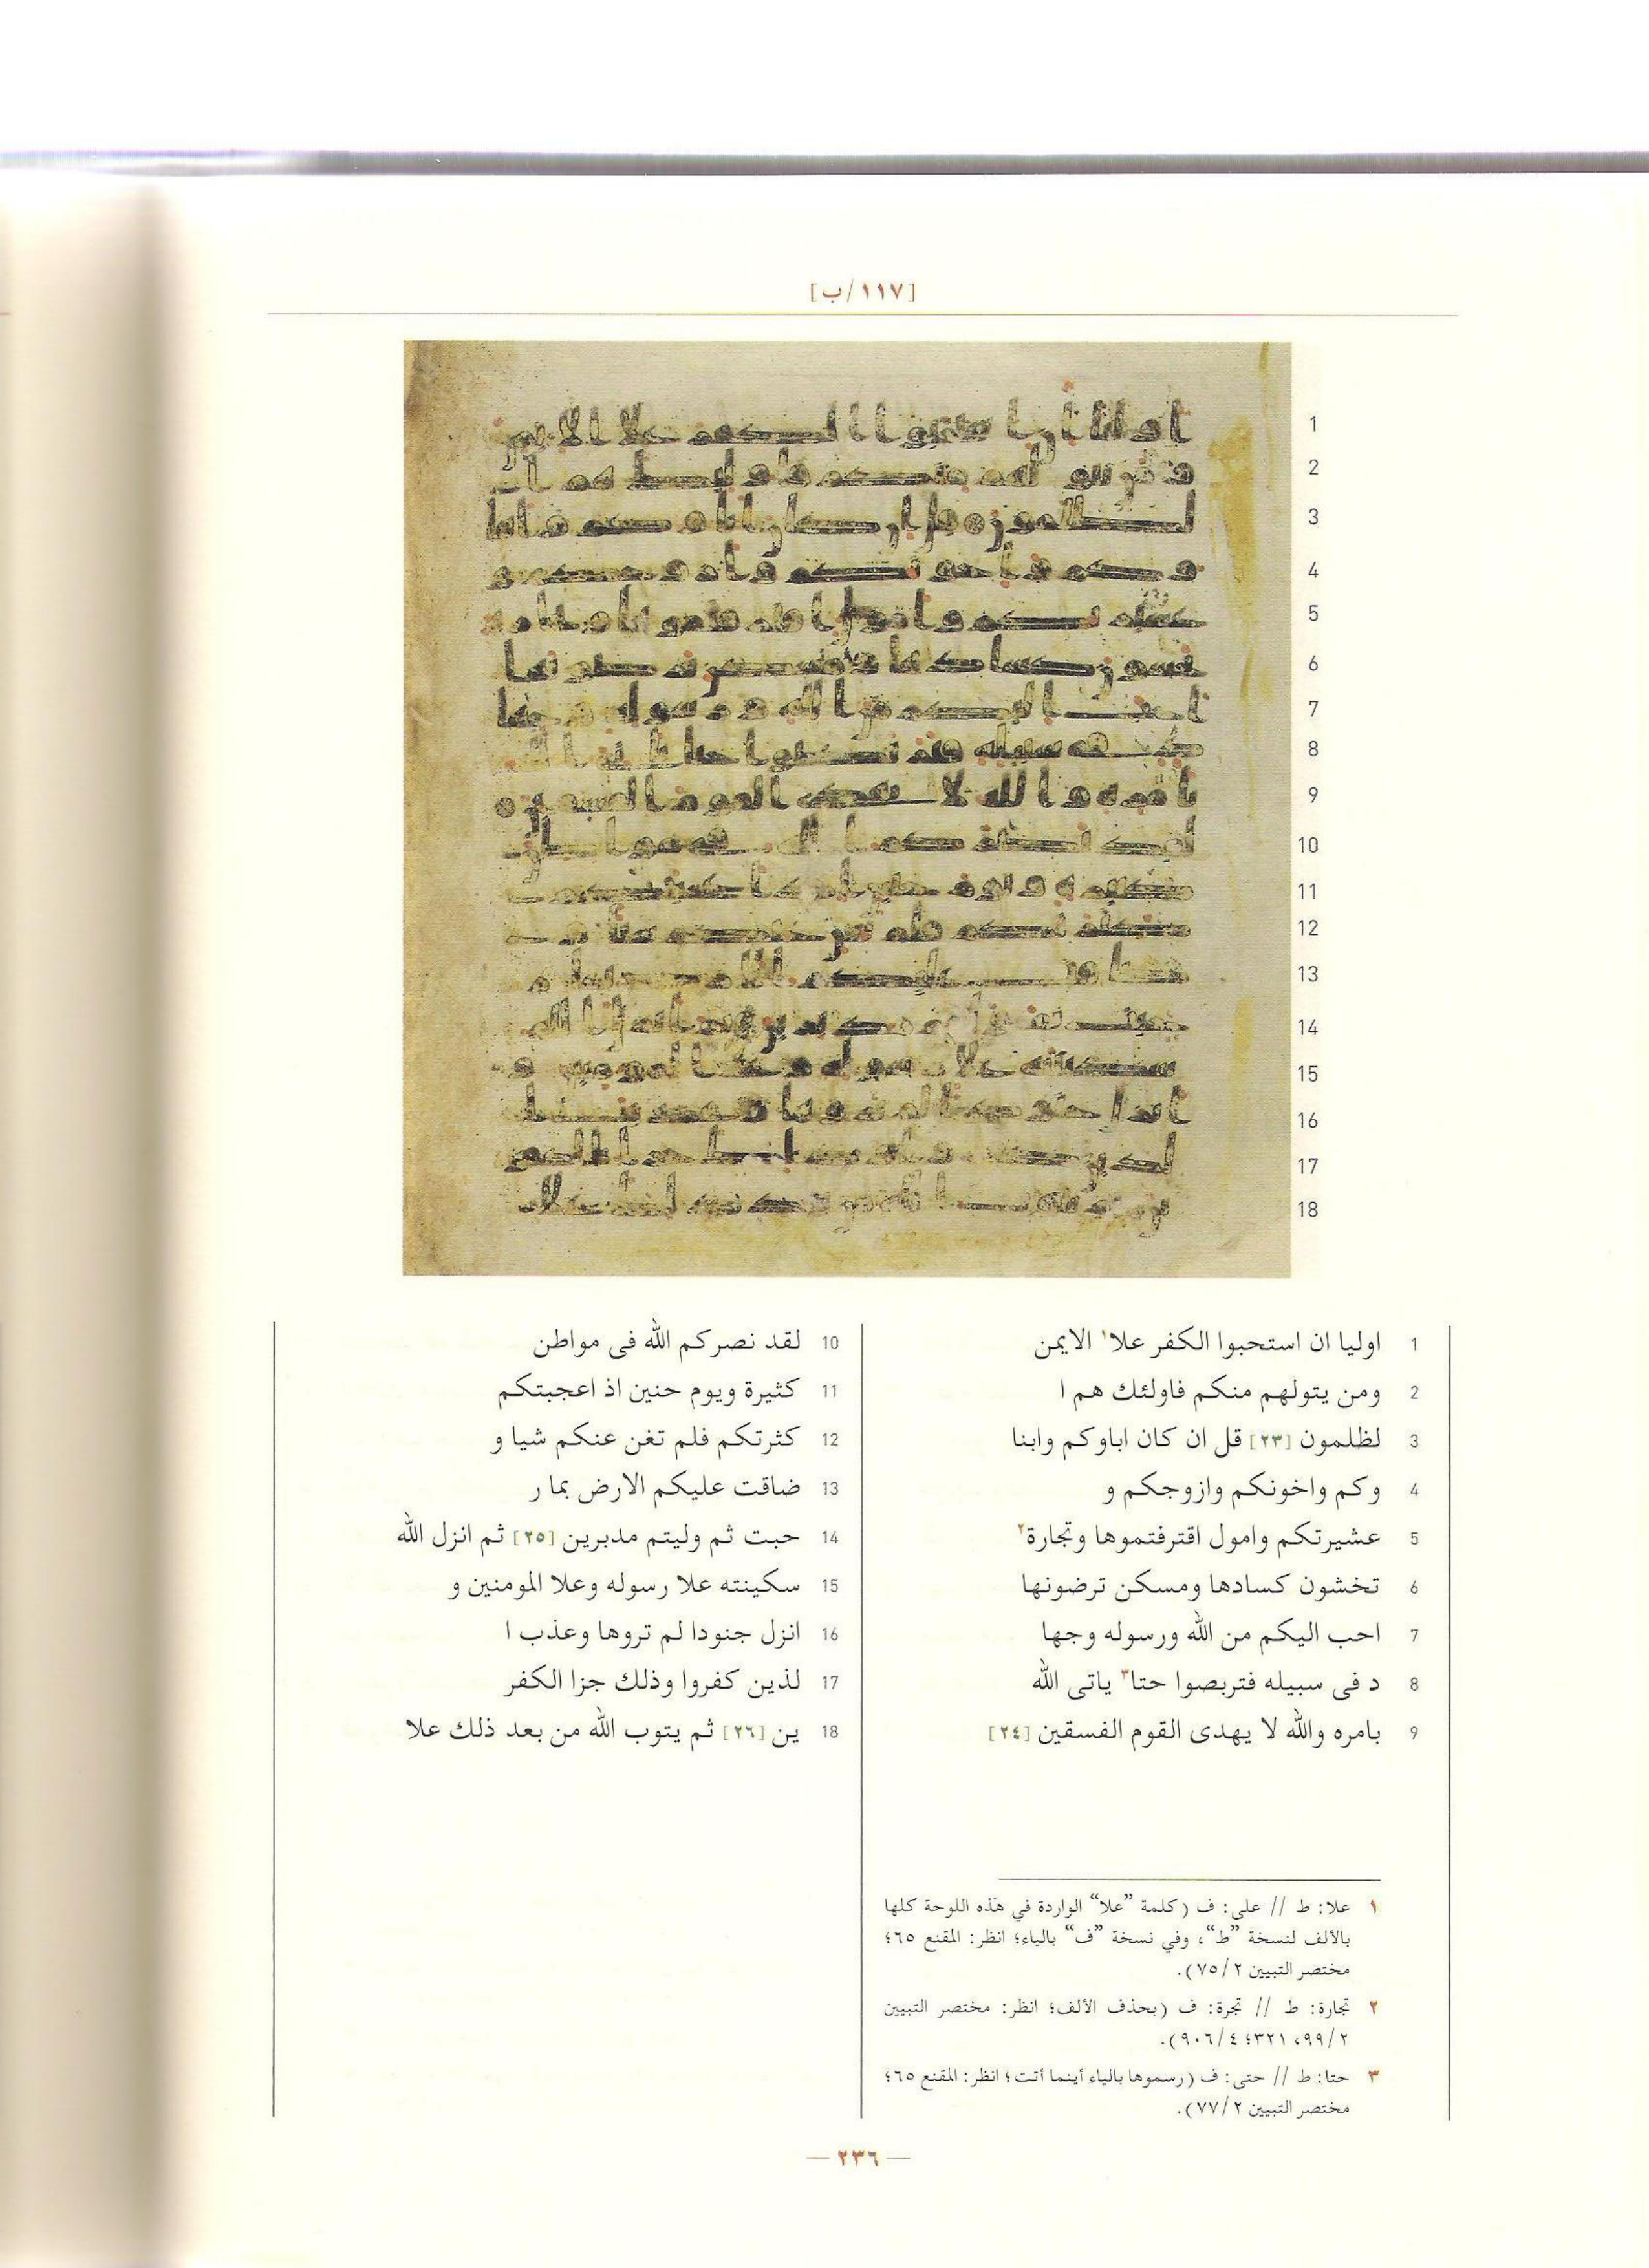 [١١٧/ب]
1 اوليا ان استحبوا الكفر علا١ الايمن
2 ومن يتولهم منكم فاولئك هم ا
3 لظلمون [٢٣] قل ان كان اباوكم وابنا
4 وكم واخونكم وازوجكم و
5 عشيرتكم وامول اقترفتموها وتجارة٢
6 تخشون كسادها ومسكن ترضونها
7 احب اليكم من الله ورسوله وجها
8 د فى سبيله فتربصوا حتا٣ ياتى الله
9 بامره والله لا يهدى القوم الفسقين [٢٤]
10 لقد نصركم الله فى مواطن
11 كثيرة ويوم حنين اذ اعجبتكم
12 كثرتكم فلم تغن عنكم شيا و
13 ضاقت عليكم الارض بما ر
14 حبت ثم وليتم مدبرين [٢٥] ثم انزل الله
15 سكينته علا رسوله وعلا المومنين و
16 انزل جنودا لم تروها وعذب ا
17 لذين كفروا وذلك جزا الكفر
18 ين [٢٦] ثم يتوب الله من بعد ذلك علا
١ علا: ط // على: ف (كلمة ”علا“ الواردة في هذه اللوحة كلها
بالألف لنسخة ”ط“، وفي نسخة ”ف“ بالياء؛ انظر: المقنع ٦٥؛
مختصر التبيين ٧٥/٢).
٢ تجارة: ط // تجرة: ف (بحذف الألف؛ انظر: مختصر التبيين
٩٩/٢، ٣٢١؛ ٩٠٦/٤).
٣ حتا: ط // حتى: ف (رسموها بالياء أينما أتت؛ انظر: المقنع ٦٥؛
مختصر التبيين ٧٧/٢).
— ٢٣٦ —